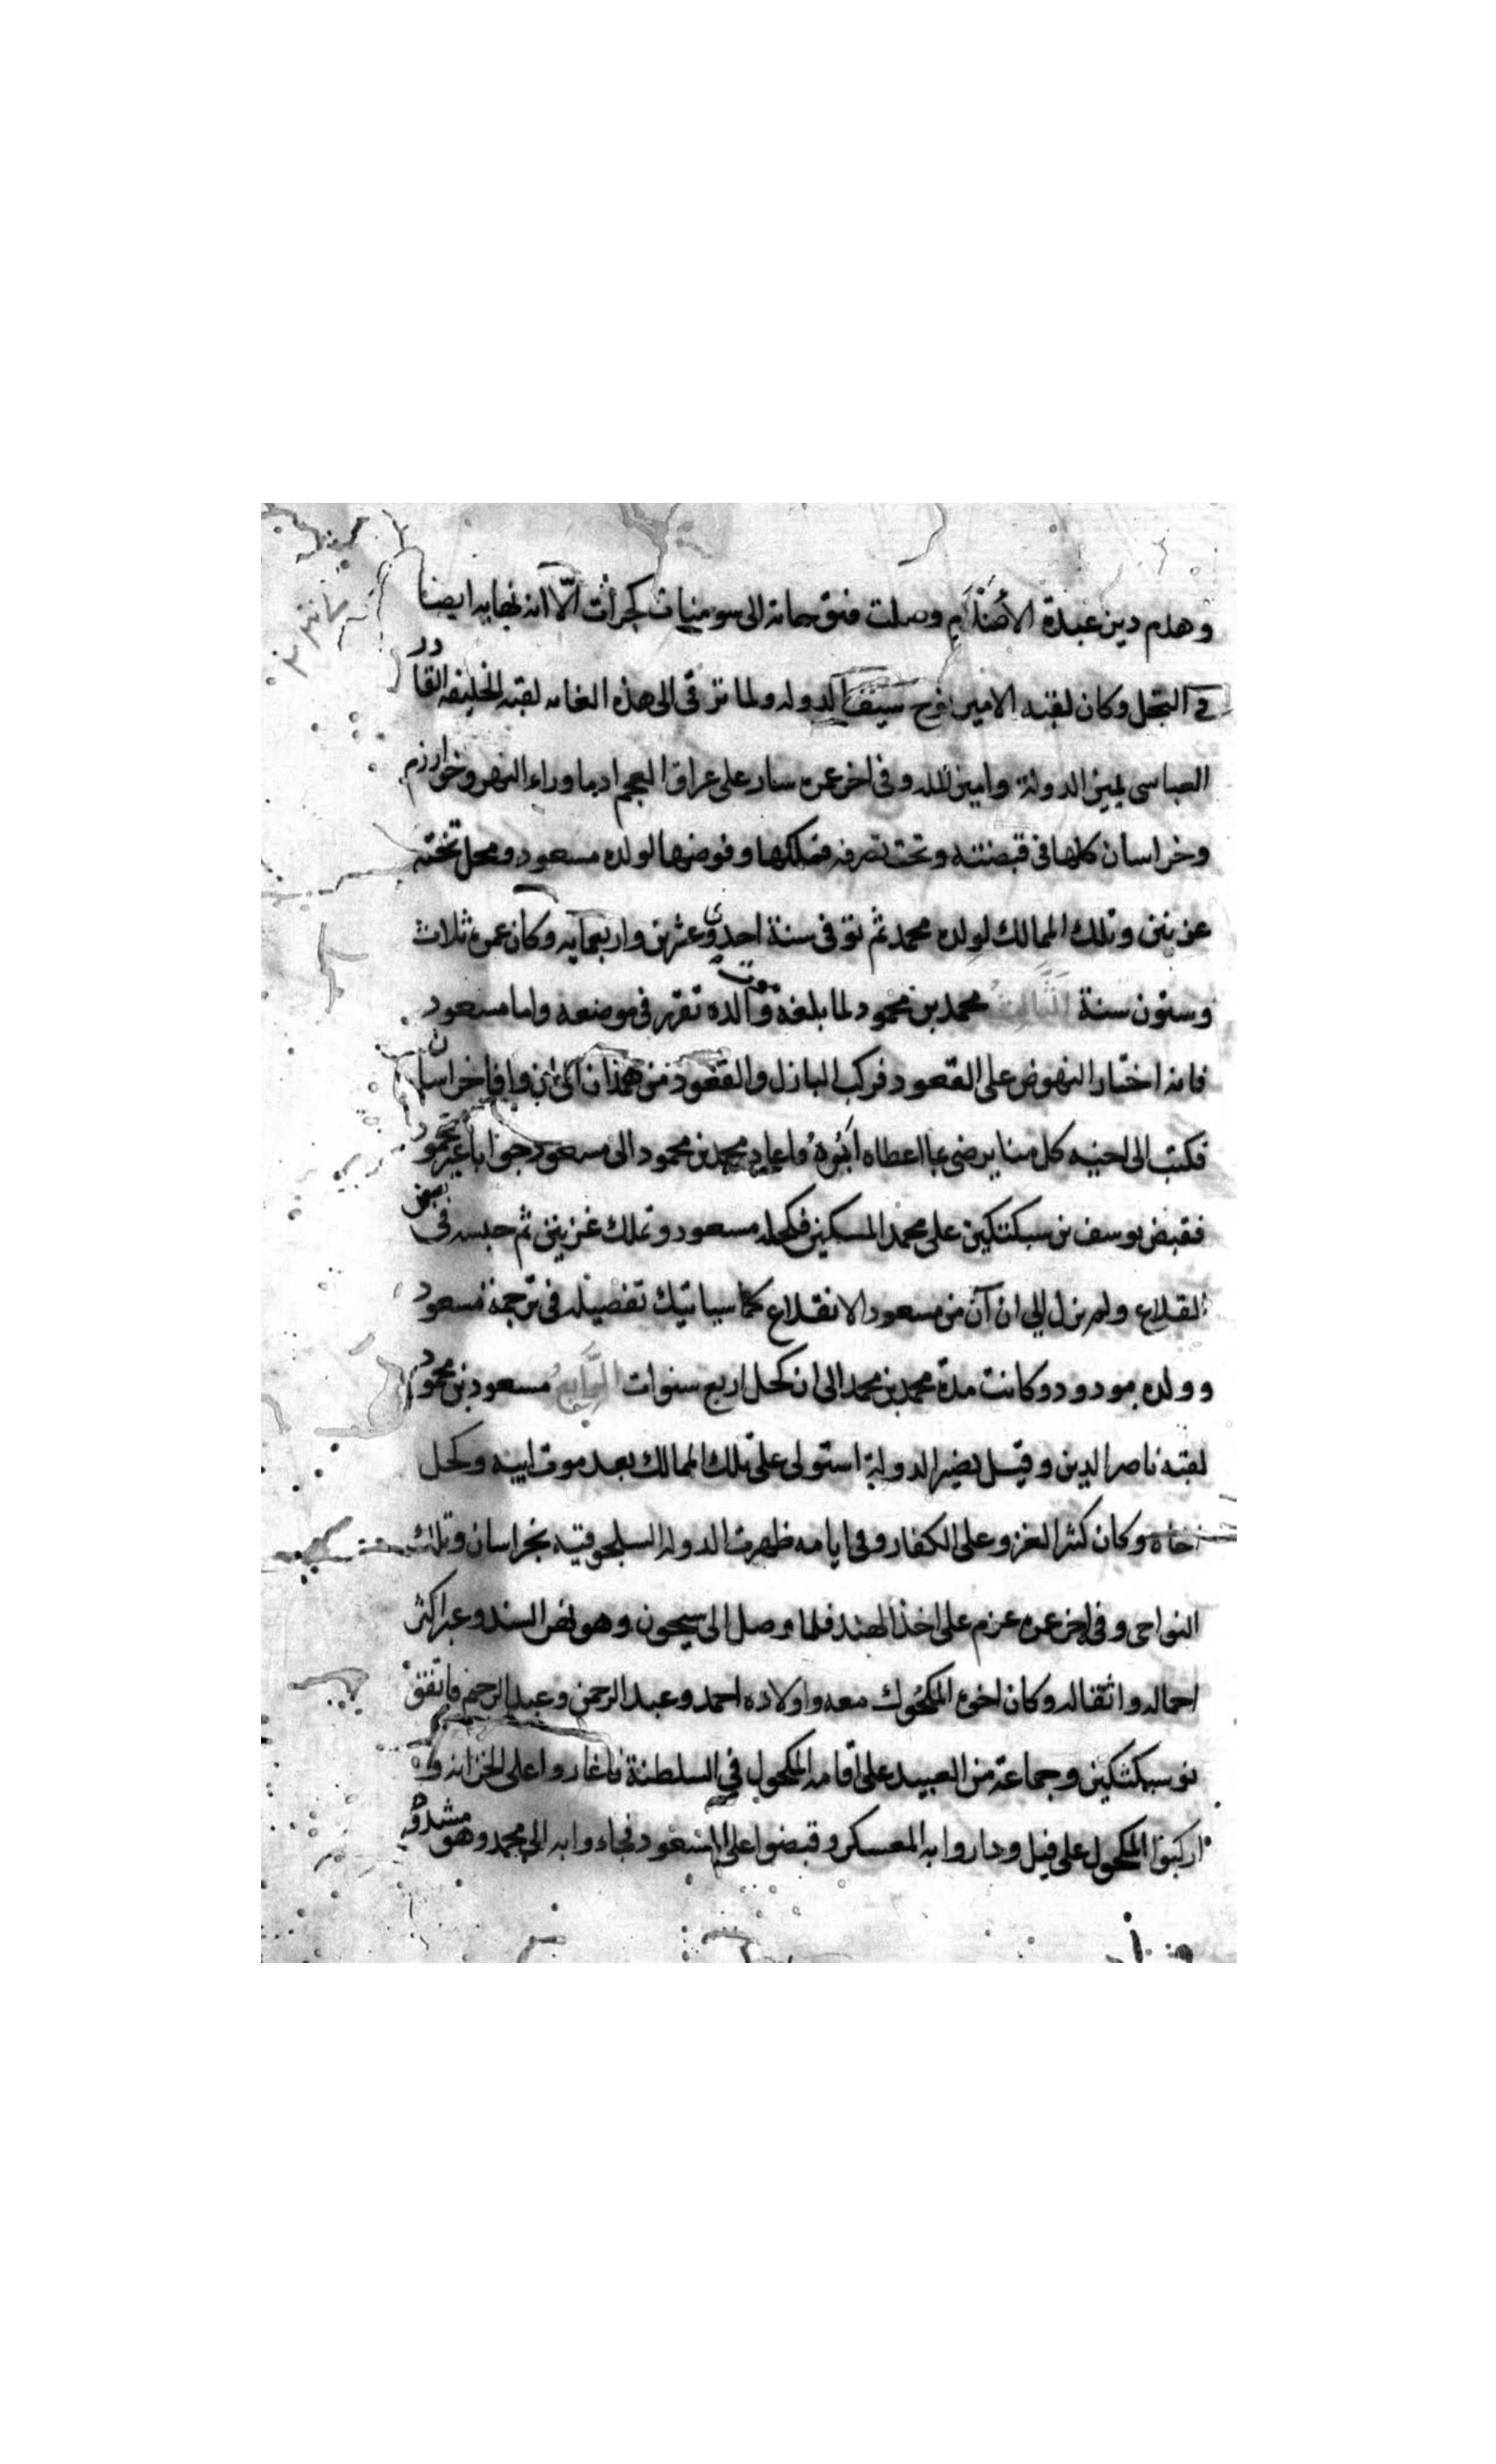 وهدم دين عبدة الأصنام وصلت فتوحاته الى سومنيات كجرات الّا انه نهايه ايضا
في البخل وكان لقبه الامير نوح سيف الدوله ولما ترقى الى هذه الغايه لقبه الخليفه القادر
العباسى يمين الدولة وامين المله وفى اخر عمره سار على عراق العجم اذ ما وراء النهر وخوارزم
وخراسان كلها فى قبضته وتحت تصرفه فتملكها وفوضها لولده مسعود ومحل تخته
غزنين وتلك الممالك لولده محمد ثم توفى سنة احدى وعشرين واربعمايه وكان عمره ثلاث
وستون سنة الثالث محمد بن محمود لما بلغه موت والده تقرر فى موضعه واما مسعود
فانه اختار النهوض على القعود فركب البازل والقعود من همذان الى ان وافا خراسان
فكتب الى اخيه كل منا يرضى بما اعطاه ابوه فاعاد محمد بن محمود الى مسعود جوابا غير محمود
فقبض يوسف بن سبكتكين على محمد المسكين فكحله مسعود وتملك غزنين ثم حبسه فى بعض
القلاع ولم يزل الى ان آن من مسعود الانقلاع كما سياتيك تفصيله فى ترجمة مسعود
وولده مودود وكانت مدة محمد بن محمد الى ان كحل اربع سنوات الرابع مسعود بن محمود
لقبه ناصر الدين وقيل نصير الدولة استولى على تلك الممالك بعد موت ابيه وكحل
اخاه وكان كثير الغزو على الكفار وفى ايامه ظهرت الدوله السلجوقيه بخراسان وتلك
النواحى وفى اخر عمره عزم على اخذ الهند فلما وصل الى سيحون وهو نهر السند وعبر اكثر
احماله واثقاله وكان اخوه المكحول معه واولاده احمد وعبد الرحمن وعبد الرحيم فاتفق
بنو سبكتكين وجماعة من العبيد على اقامه المكحول في السلطنة فاغاروا على الخزانه و
اركبوا المكحول على فيل وداروا به المعسكر وقبضوا على المسعود فجاءوا به الى محمد وهو